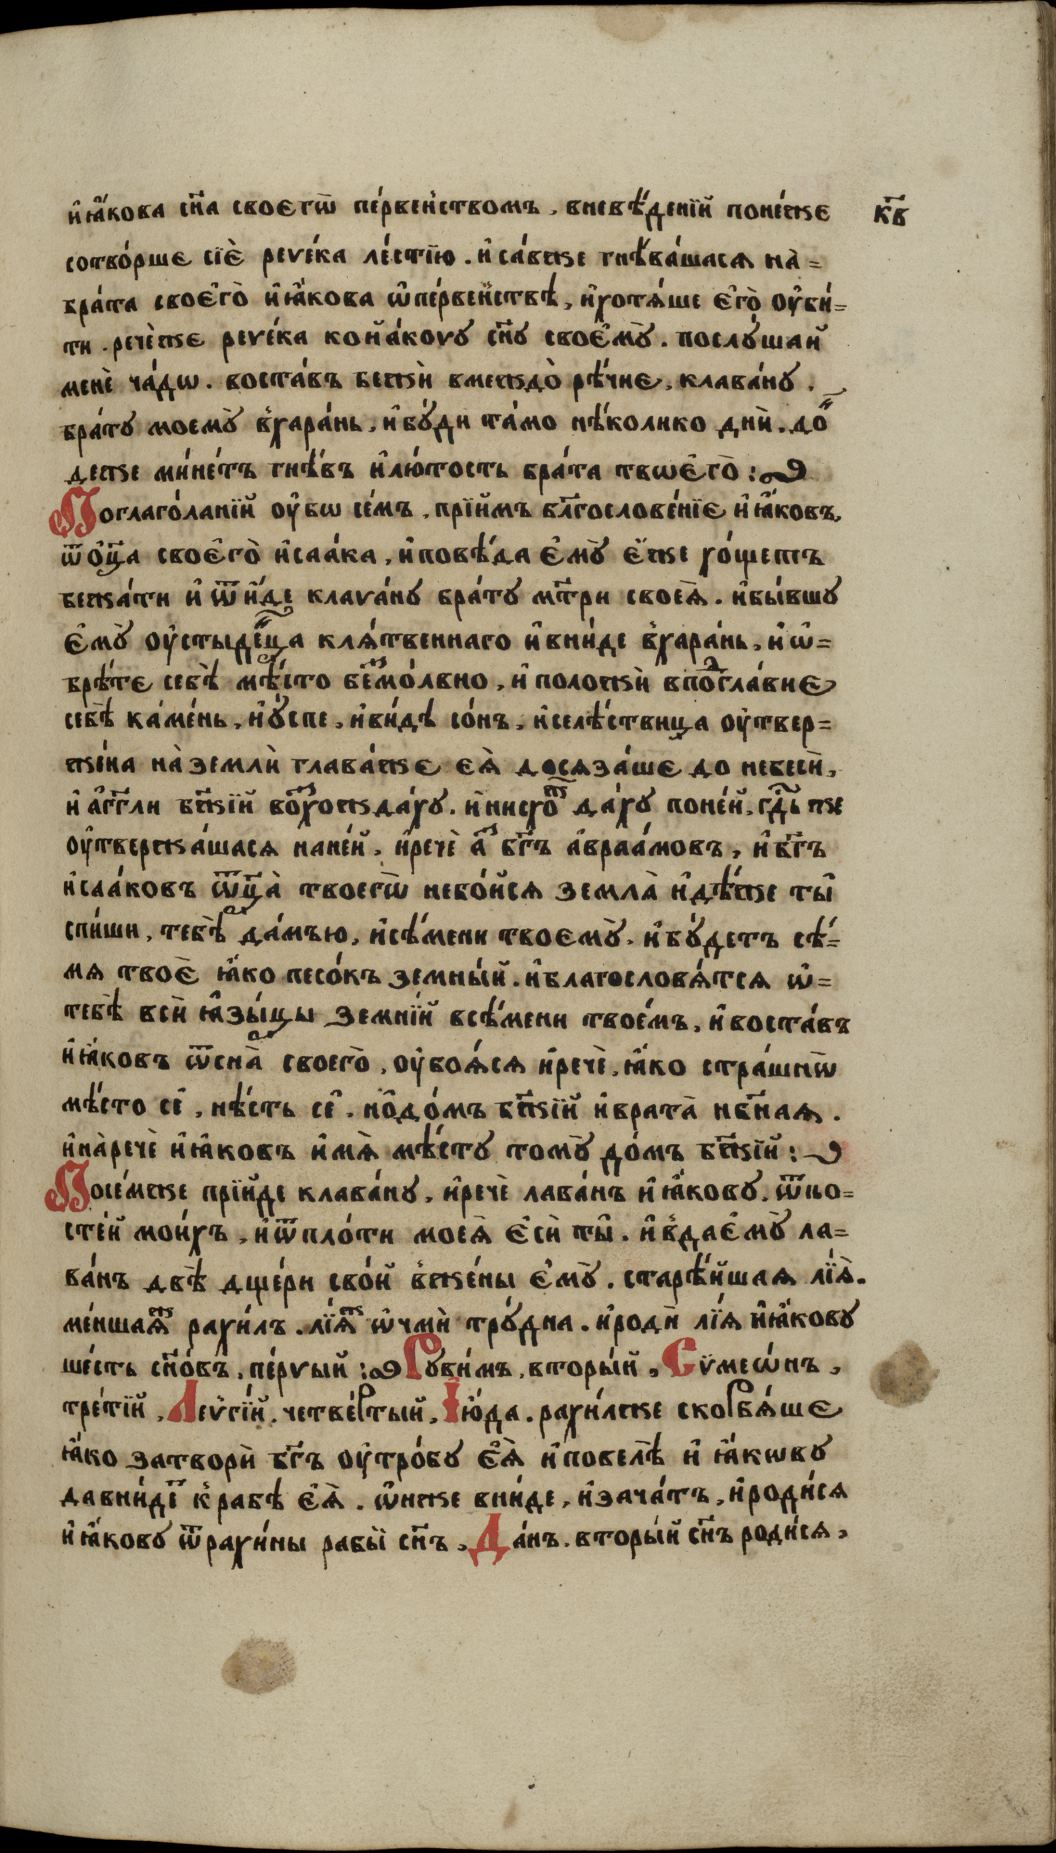 и҆ ꙗ҆́кова сн҃а своегѡ̀ пе́рвен́ствомъ, вневѣ́денїй поне́же
к҃в
сотво́рше сїѐ реѵе́ка ле́стїю. и҆са́вже гнѣ́вашася на̀-
бра́та своего̀ и҆ ꙗ҆́кова ѡ҆пе́рвен́ствѣ, и҆хотѧ́ше є҆го̀ оу҆би́-
ти. рече́же реѵе́ка кои҆а́кову сн҃у своемꙋ̀. послꙋ́шай
менѐ ча́дѡ. воста́въ бежѝ вмеждо̀ рѣ́чие, клава́нꙋ.
бра́тꙋ моемꙋ̀ в̾хара́нь, и҆бꙋ́ди та́мо нѣ́колико дни̑. до́
деже мине́тъ гнѣ́въ и҆лю́тость бра́та твоє҆го̀:
Поглаго́ланїй оу҆бѡ се́мъ, прїи҆мъ бл҃гослове́нїе и҆ ꙗ҆́ковъ,
ѿо҆ц҃а своєго̀ и҆саа́ка, и҆повѣ́да є҆мꙋ̀ є҆́же хо́щетъ
бежа́ти и҆ ѿи҆́де клава́нꙋ бра́тꙋ мт҃ри своеѧ̀. и҆бы́вшꙋ
є҆мꙋ̀ оу҆стыде́нца клѧ́твеннаго и҆вни́де в̾хара́нь, и҆ ѡ҆-
брѣ́те себѣ̀ мѣ́сто безмо́лвно, и҆ положѝ впоⷣгла́вие
себѣ̀ ка́мень, и҆ꙋ҆спе, и҆ви́дѣ со́нъ, и҆селѣ́ствица оу҆твер-
же́на на̀ землѝ глава́же еѧ̀ досяза́ше до небесѝ,
и҆ а҆́гг҃ли бж҃їй воⷭ҇хожда́хꙋ. и҆нисхоⷤда́хꙋ поне́й. гдⷭ҇ьже
оу҆твержа́шася нане́й, и҆речѐ а҆зъ бг҃ъ а҆враа́мовъ, и҆ бг҃ъ
и҆саа́ковъ ѿц҃а̀ твоегѡ̀ небо́йся земла̀ и҆дѣ́же ты̀
спи́ши, тебѣ̀ да́мъю, и҆сѣ́мени твоемꙋ̀. и҆бꙋ́детъ сѣ́-
мя твоѐ ꙗ҆́ко песо́къ земны́й. и҆благословѧ́тся ѡ҆-
тебѣ̀ всѝ ꙗ҆зы́цы земнїй всѣ́мени твое́мъ, и҆воста́въ
и҆ ꙗ҆́ковъ ѿсна̀ своего̀, оу҆боѧ́ся и҆речѐ, ꙗ҆́ко стра́шнѡ
мѣ́сто се̑, нѣ́сть се̑. но̑до́мъ бж҃їй и҆врата̀ нбⷭ҇ная.
и҆на̀речѐ и҆ ꙗ҆́ковъ и҆́мѧ̀ мѣ́стꙋ томꙋ̀ до́мъ бж҃їй:
Посе́мже прїи́де клава́нꙋ, и҆речѐ лава́нъ и҆ ꙗ҆́ковꙋ. ѿко-
сте́й мои́хъ, и҆ ѿпло́ти моеѧ̀ є҆сѝ ты̀. и҆ в̾дає҆мꙋ̀ ла-
ва́нъ двѣ̀ дще́ри свои́ в̾жены є҆мꙋ̀. старѣ́йшая лі́ѧ̀.
ме́ншаяⷤ рахи́лъ. лі́ѧⷤ ѡ҆чмѝ трꙋ́дна. и҆родѝ лі́я и҆ ꙗ҆́ковꙋ
ше́сть сн҃о́въ, пе́рвый: Рꙋви́мъ, вторы́й, Сѵ̈меѡ́нъ,
тре́тїй, Леѵгі́й, четве́ртый, Ію҆́да. рахи́лже скорбѧ́ше
ꙗ҆́ко затворѝ бг҃ъ оу҆тро́бꙋ є҆ѧ̀ и҆повелѣ̀ и҆ ꙗ҆́кѡвꙋ
давни́деⷮ к̾рабѣ̀ є҆ѧ̀. ѡ҆́нже вни́де, и҆зача́тъ, и҆роди́ся
и҆ ꙗ҆́ковꙋ ѿрахи́ны рабы̀ сн҃ъ, Да́нъ. вторы́й сн҃ъ роди́ся,